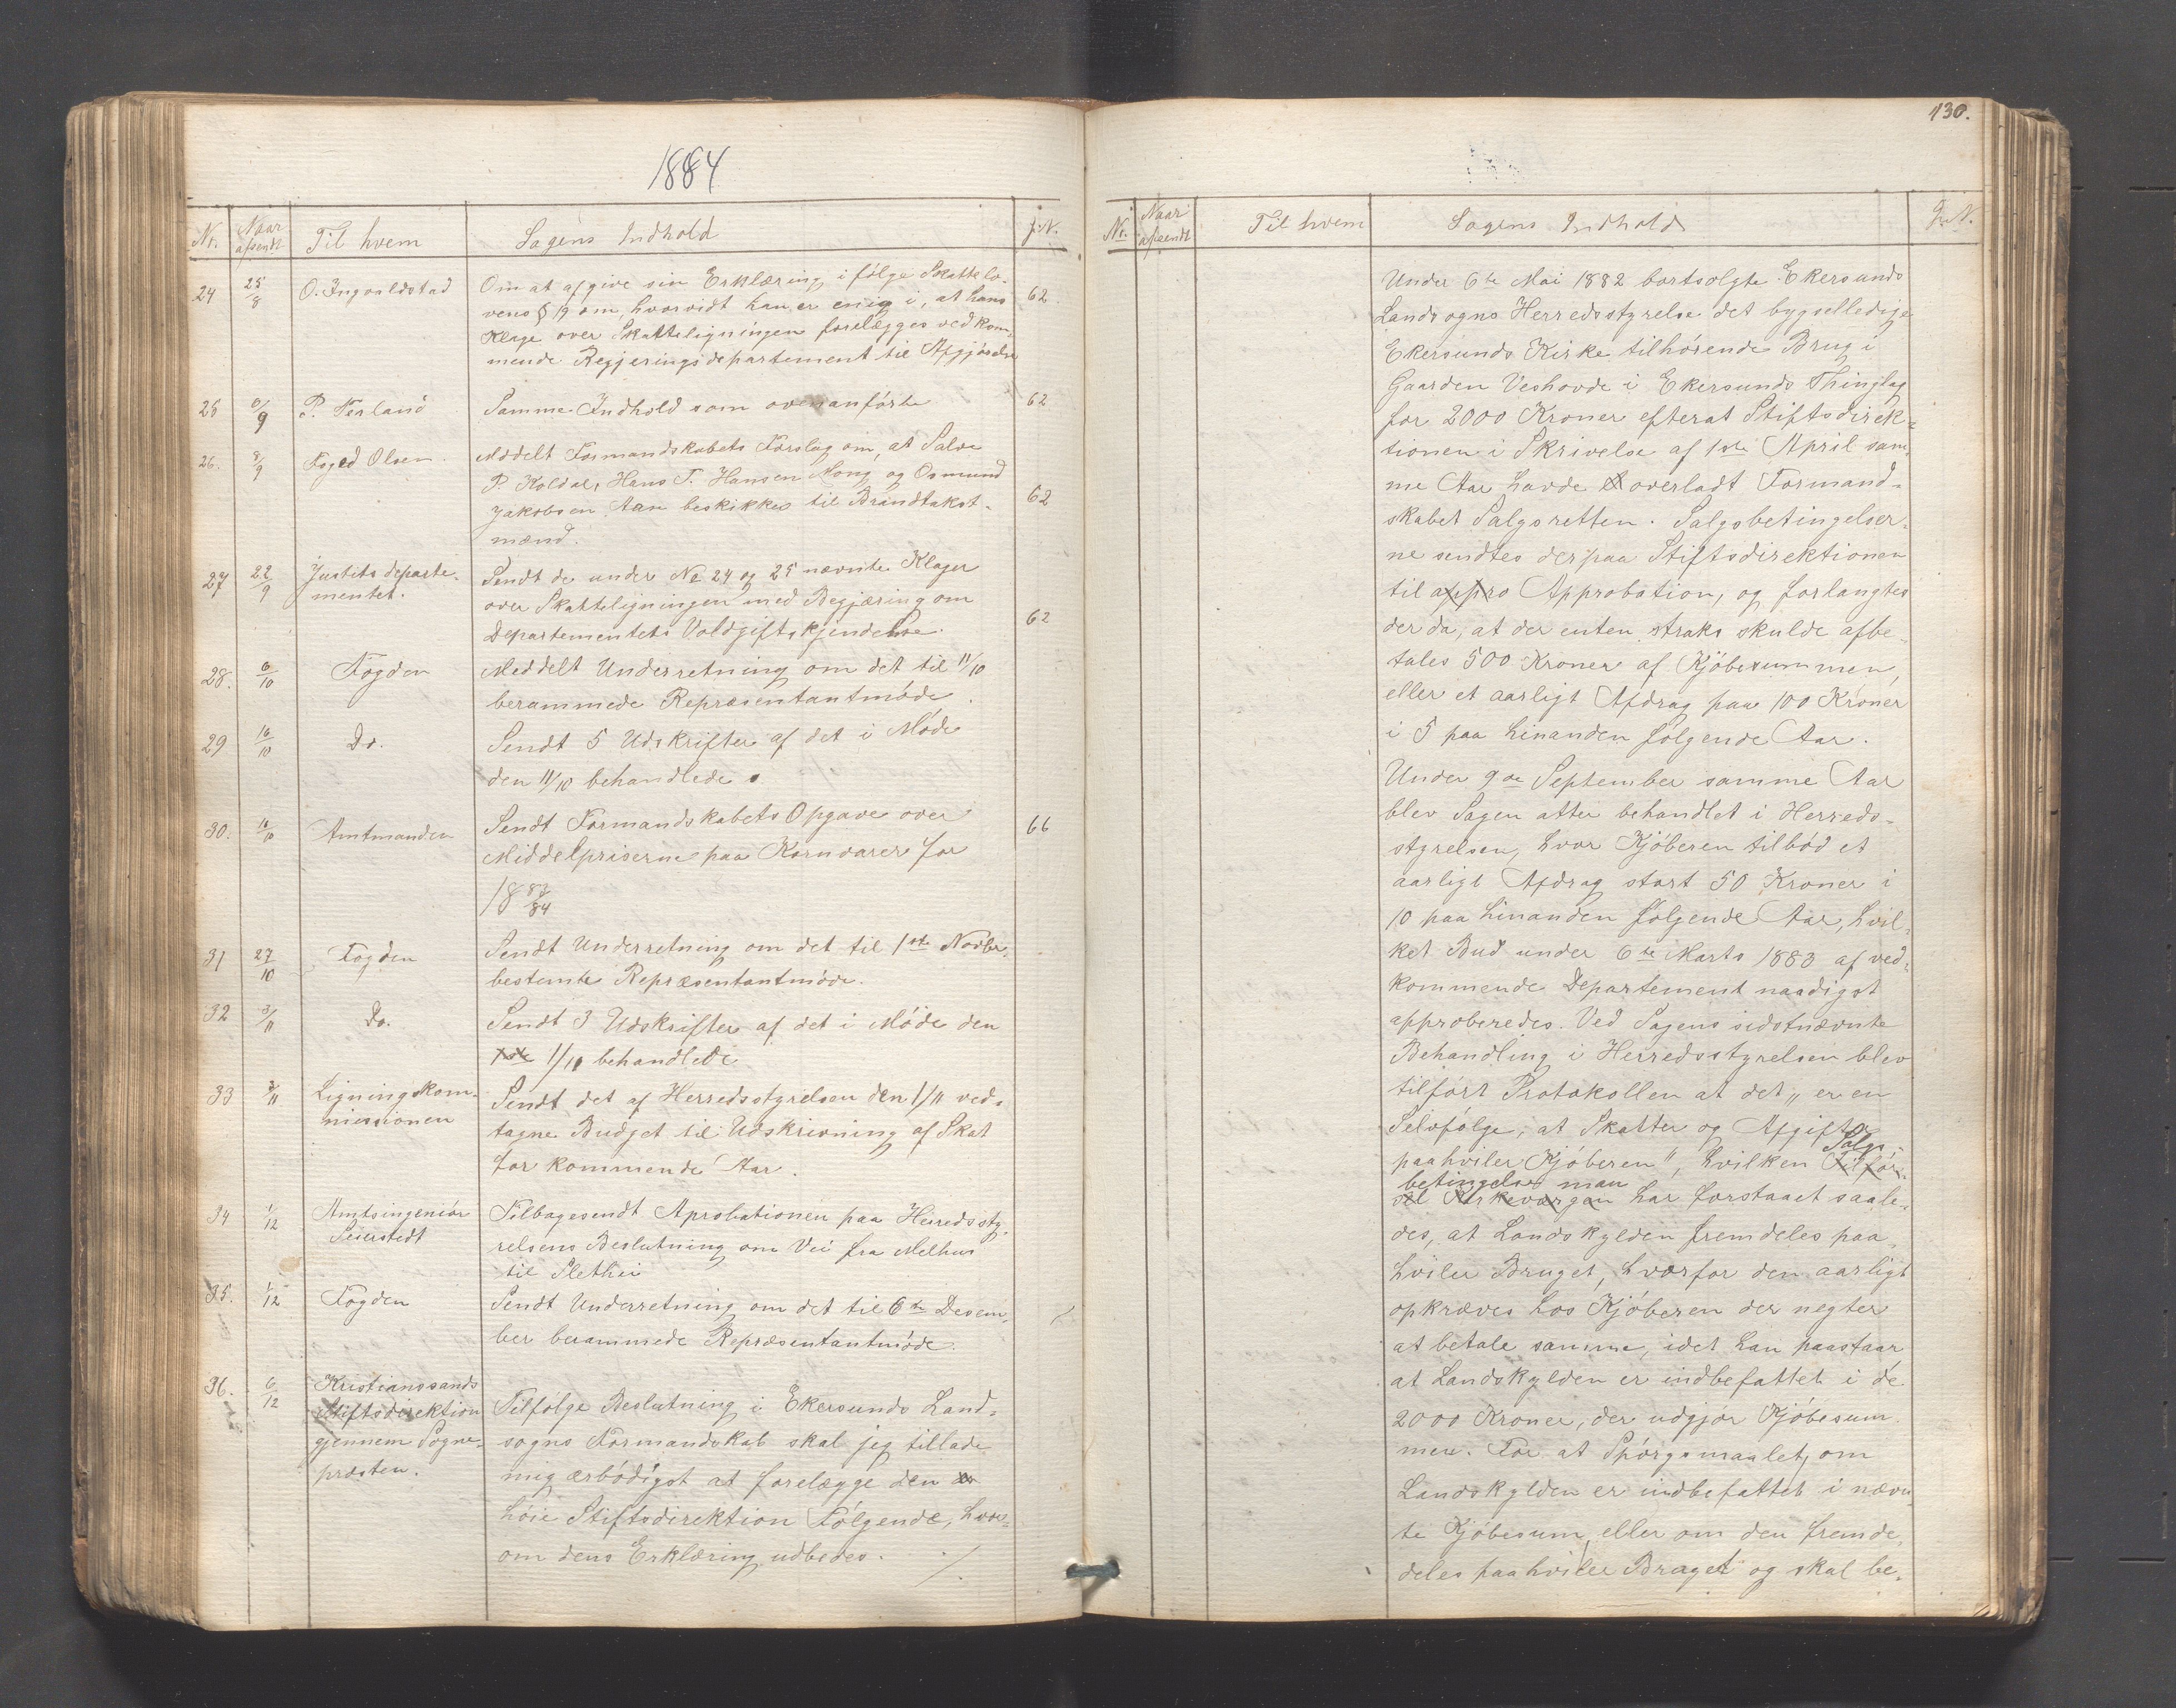 1884
No. Naar afsendt Til hvem Sagens Indhold J.N.
24 25/8 O. Ingvaldstad Om at afgive sin Erklæring i følge Skattelo-
vens § 19 om, hvorvidt han er enig i, at hans 62
Klage over Skatteligningen forelægges vedkom-
mende Regjeringsdepartement til Afgjørelse
25 8/9 P. Terland Samme Indhold som ovenanførte 62
26. 8/9 Foged Olsen Meddelt Formandskabets Forslag om, at Salve
P. Koldal, Hans T. Hansen Mong og Osmund
Jakobsen Aan beskikkes til Brandtakst- 62
mænd.
27 22/9 Justitsdeparte- Sendt de under No 24 og 25 nævnte Klager
mentet. over Skatteligningen med Begjæring om
Departementets Voldgiftskjendelse. 62
28. 6/10 Fogden Meddelt Underretning om det til 11/10
berammede Repræsentantmøde.
29 16/10 Do. Sendt 5 Udskrifter af det i Møde
den 11/10 behandlede
30. 16/10 Amtmanden Sendt Formandskabets Opgave over 66
Middelpriserne paa Kornvarer for
1883/84
31 27/10 Fogden Sendt Underretning om det til 1ste Novbr.
bestemte Repræsentantmøde.
32 3/11 Do. Sendt 3 Udskrifter af det i Møde den
1ste 1/11 behandlede
33 3/11 Ligningskom- Sendt det af Herredsstyrelsen den 1/11 ved-
missionen tagne Budget til Udskrivning af Skat
for kommende Aar.
34 1/12 Amtsingeniør Tilbagesendt Aprobationen paa Herredssty-
Seierstedt relsens Beslutning om Vei fra Melhus
til Slethei
35. 1/12 Fogden Sendt Underretning om det til 6te Desem-
ber berammede Repræsentantmøde.
36. 6/12 Kristianssands
Stiftsdirektion Tilfølge Beslutning i Ekersunds Land-
gjennem Sogne- sogns Formandskab skal jeg tillade
præsten. mig ærbødigst at forelægge den
høie Stiftsdirektion Følgende, hvor-
om dens Erklæring udbedes. ./.
130.
No. Naar afsendt Til hvem Sagens Indhold J.N.
Under 6te Mai 1882 bortsolgte Ekersunds
Landsogns Herredsstyrelse det bygselledige
Ekersunds Kirke tilhørende Brug i
Gaarden Veshovde i Ekersunds Thinglag
for 2000 Kroner efterat Stiftsdirek-
tionen i Skrivelse af 1ste April sam-
me Aar havde overladt Formand-
skabet Salgsretten. Salgsbetingelser-
ne sendtes derpaa Stiftsdirektionen
til appro Approbation, og forlangtes
der da, at der enten straks skulde afbe-
tales 500 Kroner af Kjøbesummen,
eller et aarligt Afdrag paa 100 Kroner
i 5 paa hinanden følgende Aar.
Under 9de September samme Aar
blev Sagen atter behandlet i Herreds-
styrelsen, hvor Kjøberen tilbød et
aarligt Afdrag stort 50 Kroner i
10 paa hinanden følgende Aar, hvil-
ket Bud under 6te Marts 1883 af ved-
kommende Departement naadigst
approberedes. Ved Sagens sidstnævnte
Behandling i Herredsstyrelsen blev
tilført Protokollen at det „er en
Selvfølge, at Skatter og Afgifter
paahviler Kjøberen", hvilken Tilfør- Salgs-
sel Kirkeværgen betingelse man har forstaaet saale-
des, at Landskylden fremdeles paa-
hviler Bruget, hvorfor den aarligt
opkræves hos Kjøberen der negter
at betale samme, idet han paastaar
at Landskylden er indbefattet i de
2000 Kroner, der udgjør Kjøbesum-
men. For at Spørgsmaalet, om
Landskylden er indbefattet i nævn-
te Kjøbesum, eller om den frem-
deles paahviler Bruget og skal be-